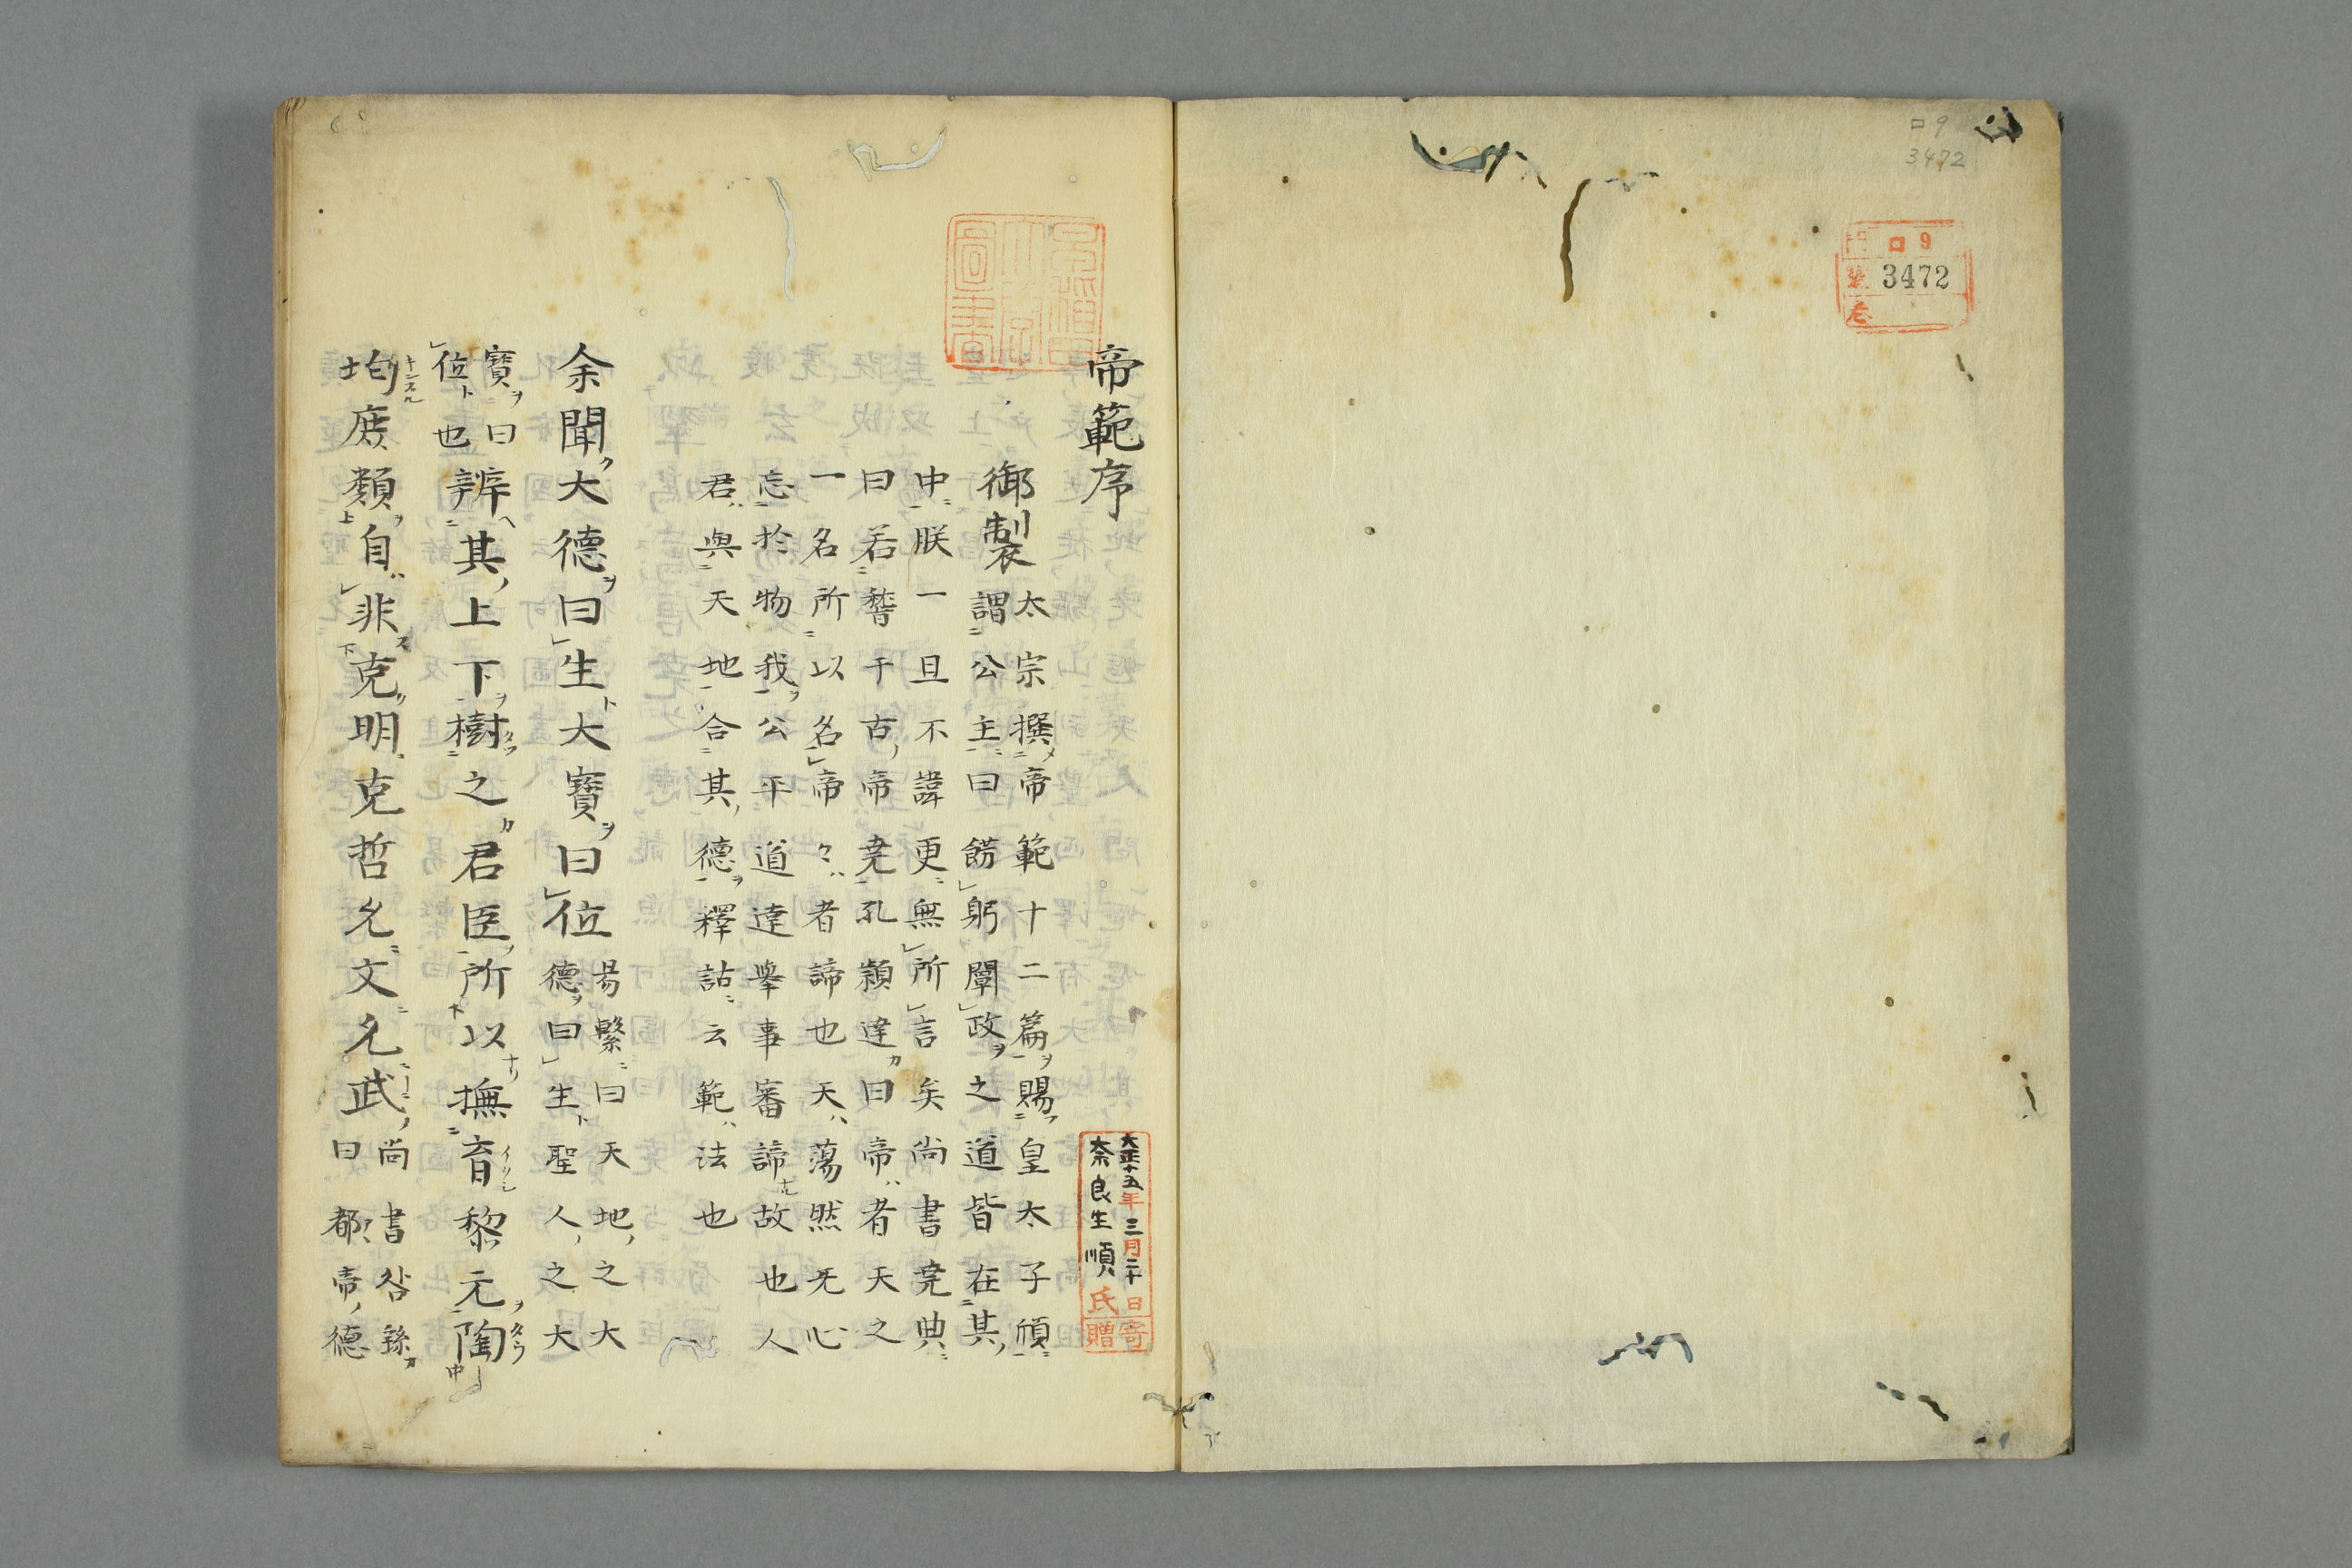 ロ9
3472
門 ロ 9
號 3472
巻
帝範序
大正十五年三月二十日寄贈
奈良生順氏
御製太宗撰帝範十二篇賜皇太子頎
謂公主曰餝躬闡政之道皆在其
中朕一旦不諱更無所言矣尚書尭典
曰若稽于古帝尭孔穎達曰帝者天之
一名所以名帝〻者諦也天蕩然无心
忘於物我公平道達舉事審諦故也人
君與天地合其德釋詁云範法也
余聞大德曰生大寶曰位易繫曰天地之大
德曰生聖人之大
寶曰
位也辨其上下樹之君臣所以撫育黎元陶
均庶類自非克明克哲允文允武尚書咎繇
曰都帝德